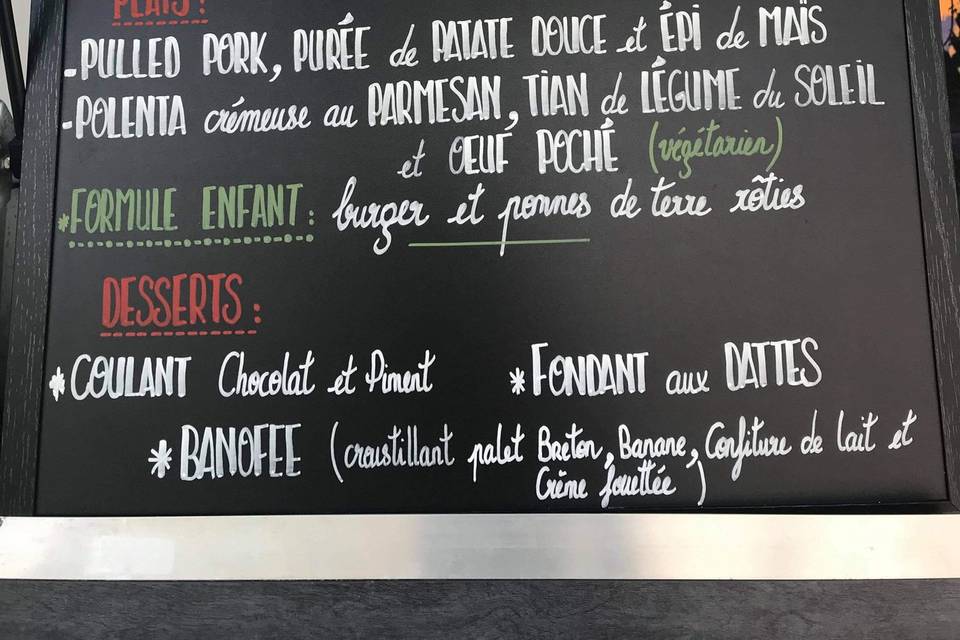 PLATS :
-PULLED PORK, PURÉE de PATATE DOUCE et ÉPI de MAÏS
-POLENTA crémeuse au PARMESAN, TIAN de LÉGUME du SOLEIL
et OEUF POCHÉ (végétarien)
*FORMULE ENFANT : burger et pommes de terre rôties
DESSERTS :
*COULANT Chocolat et Piment *FONDANT aux DATTES
*BANOFEE (croustillant palet Breton, Banane, Confiture de lait et
Crème fouettée)